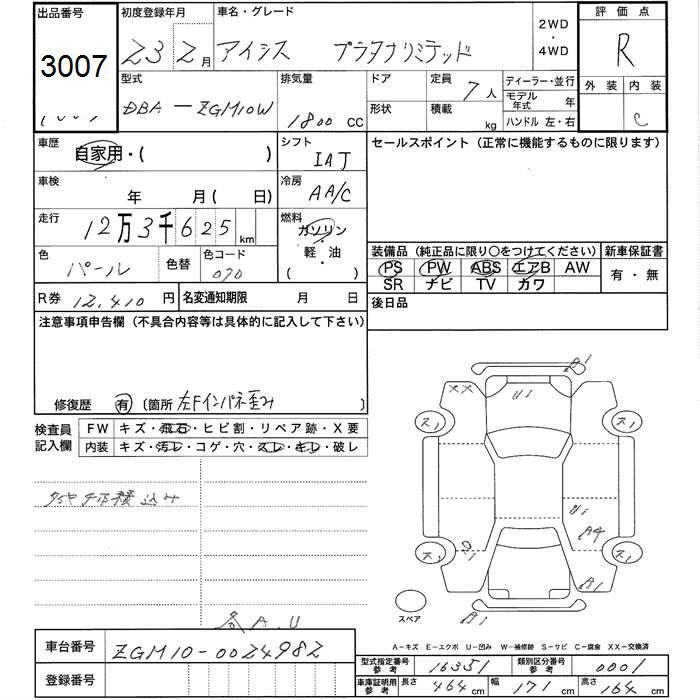 出品番号 初度登録年月 車名・グレード 2WD・4WD 評価点
3007 23 2月 アイシス プラタナリミテッド R
型式 排気量 ドア 定員 7人 ディーラー・並行 外装 内装
DBA－ZGM10W 1800 CC 形状 積載 kg モデル年式 年 C
ハンドル 左・右
車歴 自家用・( ) シフト IAT セールスポイント (正常に機能するものに限ります)
車検 年 月( 日) 冷房 AA/C
走行 12万3千625km 燃料 ガソリン・軽・油 ( )
色 パール 色替 色コード 070
装備品 (純正品に限り〇をつけてください) 新車保証書
PS PW ABS エアB AW 有・無
SR ナビ TV カワ
R券 12,410円 名変通知期限 月 日 後日品
注意事項申告欄 (不具合内容等は具体的に記入して下さい)
修復歴 有 (箇所 左Fインパネ歪み
検査員記入欄 FW キズ・飛石・ヒビ割・リペア跡・X要
内装 キズ・汚レ・コゲ・穴・スレ・キレ・破レ
積込み
A1
XX U1
ス1 ス1
U1
A4
ス1 ス1
A1
A1
スペア
A－キズ E－エクボ U－凹み W－補修跡 S－サビ C－腐食 XX－交換済
車台番号 ZGM10-0024982
登録番号
型式指定番号 参考 16351 類別区分番号 参考 0001
車庫証明用 参考 長さ 464cm 幅 171cm 高さ 164cm